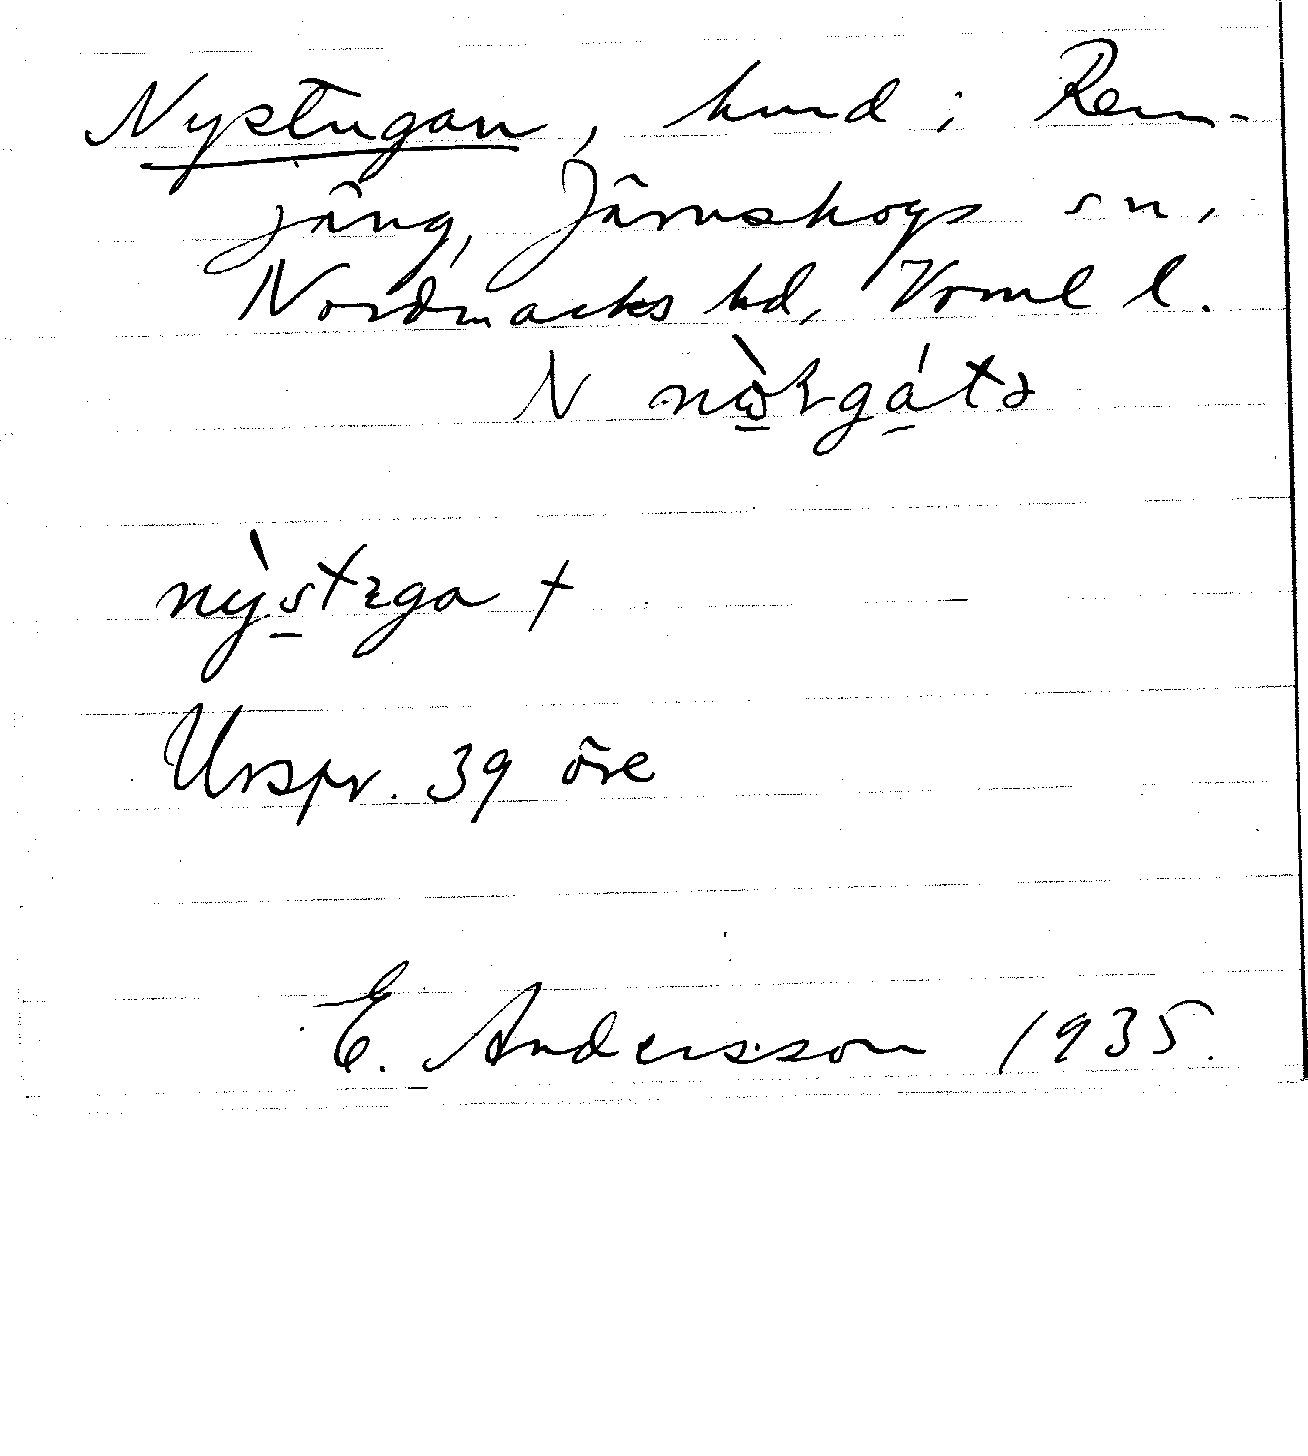 Nystugan, hmd i Rem-
jäng, Järnskogs sn,
Nordmarks hd, Verml l.
N
nỳstega †
Urspr. 39 öre
E. Andersson 1935.